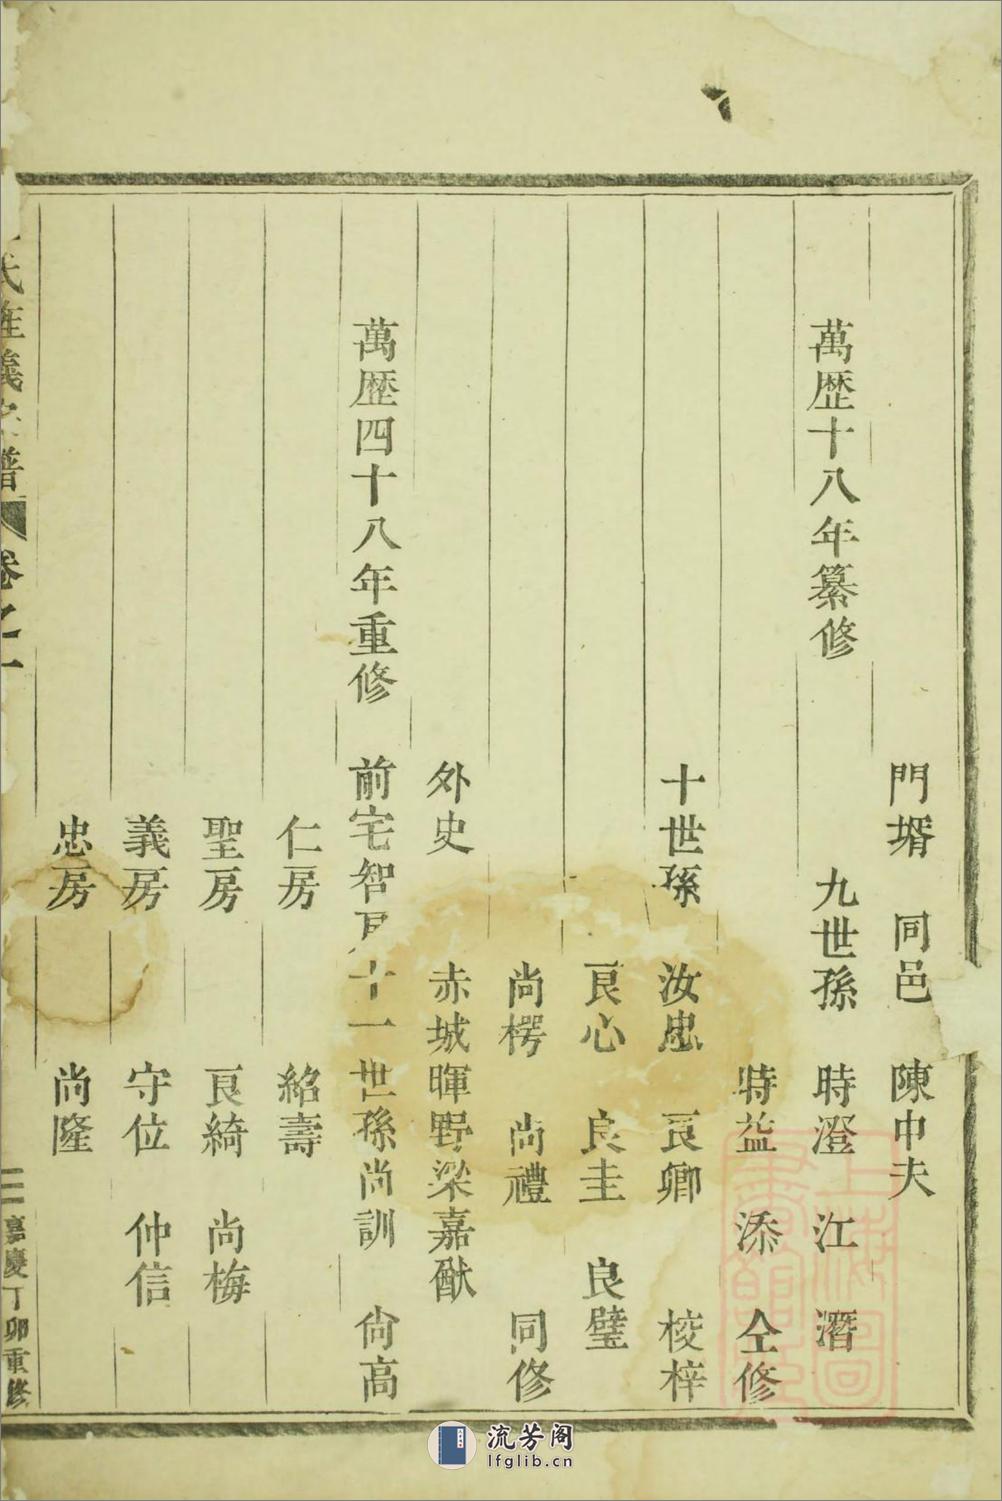 門壻 同邑 陳中夫
萬歷十八年纂修 九世孫 時澄 江 潛
時益 添 仝修
十世孫 汝忠 良卿 校梓
良心 良圭 良璧
尚楞 尚禮 同修
外史 赤城暉野梁嘉猷
萬歷四十八年重修 前宅智房十一世孫尚訓 尙高
仁房 紹壽
聖房 良綺 尚梅
義房 守位 仲信
忠房 尚隆
氏旌義 譜 卷之一 嘉慶丁卯重修
流芳阁
lfglib.cn